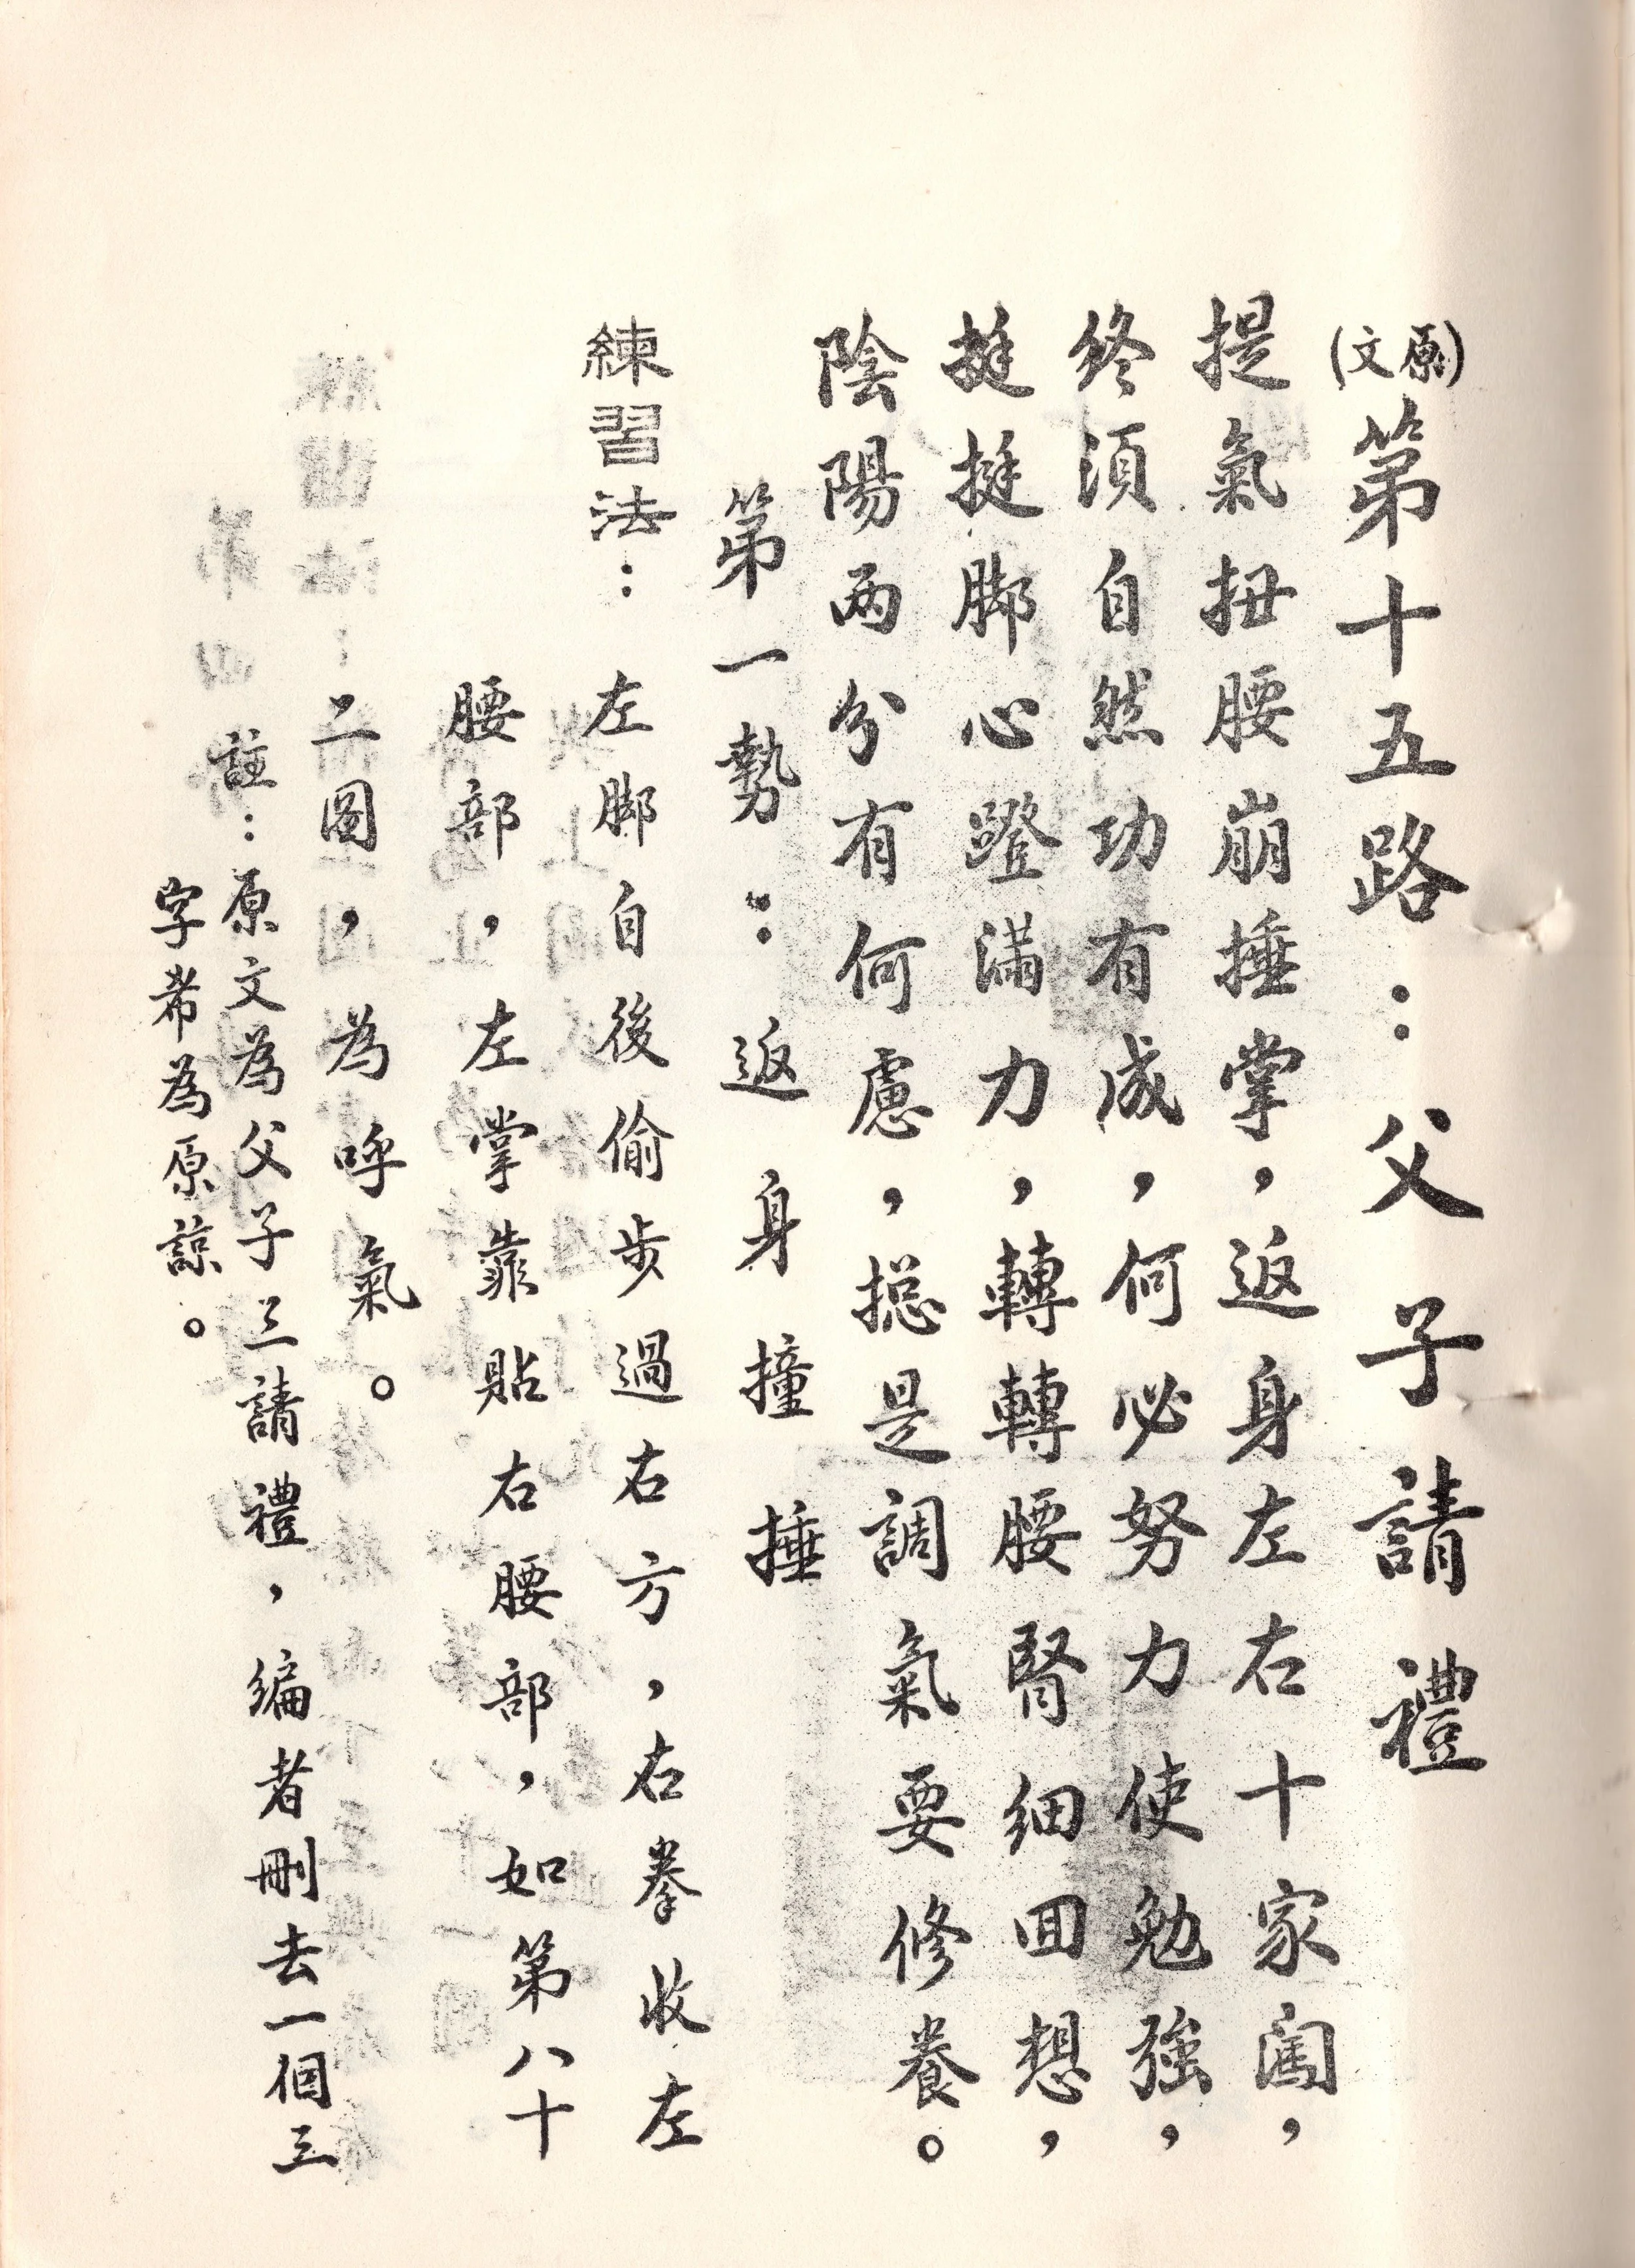 (原文)第十五路:父子請禮
提氣扭腰崩捶掌,返身左右十家闖,
終須自然功有成,何必努力使勉強,
挺挺脚心蹬滿力,轉轉腰腎細回想,
陰陽兩分有何慮,搃是調氣要修養。
第一勢:返身撞捶
練習法:左脚自後偷步過右方,右拳收左
腰部,左掌靠貼右腰部,如第八十
二圖,為呼氣。
註:原文為父子三請禮,編者刪去一個三
字希為原諒。